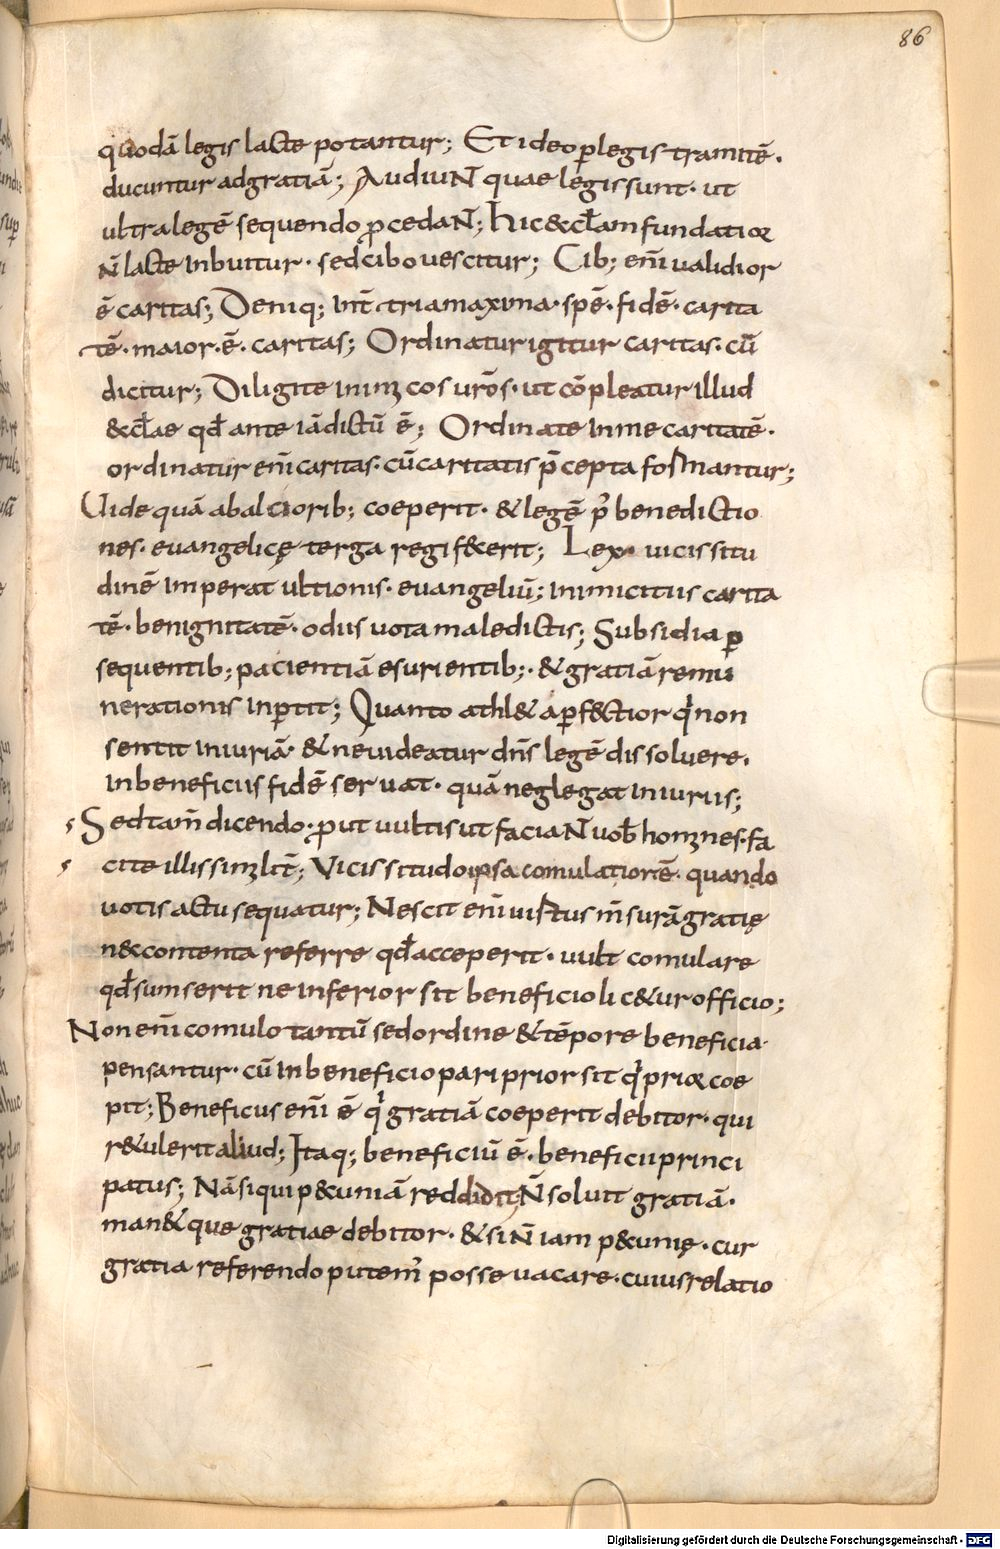 86
quodā legis lacte potantur; Et ideo ꝑ legis tramitē·
ducuntur ad gratiā; Audiuɴ̄ quae legis sunt· ut
ultra legē sequendo ꝓcedaɴ̄; Hic & eccl̄am fundatior
ɴ̄ lacte inbuitur· sed cibo uescitur; Cib; enī ualidior
ē caritas; Deniq; int̄ tria maxima· spē· fidē· carita
tē· maior· ē· caritas; Ordinatur igitur caritas· cū
dicitur; Diligite inimicos ur̄os· ut cōpleatur illud
eccl̄ae qd̄ ante iā dictū ē; Ordinate in me caritatē·
ordinatur enī caritas· cū caritatis p̄cepta formantur;
Uide quā ab altiorib; coeperit· & legē p' benedictio
nes· euangelicę terga regi fecerit; Lex· uicissitu
dinē imperat ultionis· euangeliū; inimicitiis carita
tē· benignitatē· odiis uota maledictis; Subsidia ꝑ
sequentib; pacientiā esurientib;· & gratiā remu
nerationis inꝑtit; Quanto athl&a ꝑf&ctior qi non
sentit iniuriā· & ne uideatur dn̄s legē dissoluere·
in beneficiis fidē seruat· quā neglegat iniuriis;
Sed tam̄ dicendo· ꝓut uultis ut faciaɴ̄ uob̄ homines· fa
cite illis similit̄; Vicissitudo ipsa comulatiorē· quando
uotis actu sequatur; Nescit enī uirtus m̄surā gratię
n& contenta referre qd̄ acceperit· uult comulare
qd̄ sumserit ne inferior sit beneficio lic& ur officio;
Non enī comulo tantū sed ordine & tēpore beneficia·
pensantur· cū in beneficio pari prior sit qi prior coe
pit; Beneficus enī ē qi gratiā coeperit debitor· qui
r&ulerit aliud; Itaq; beneficiū ē· beneficii princi
patus; Nā si qui p&uniā reddidit ɴ̄ soluit gratiā·
man& que gratiae debitor· & si ɴ̄ iam p&unię· cur
gratia referendo putem' posse uacare· cuius relatio
Digitalisierung gefördert durch die Deutsche Forschungsgemeinschaft - DFG